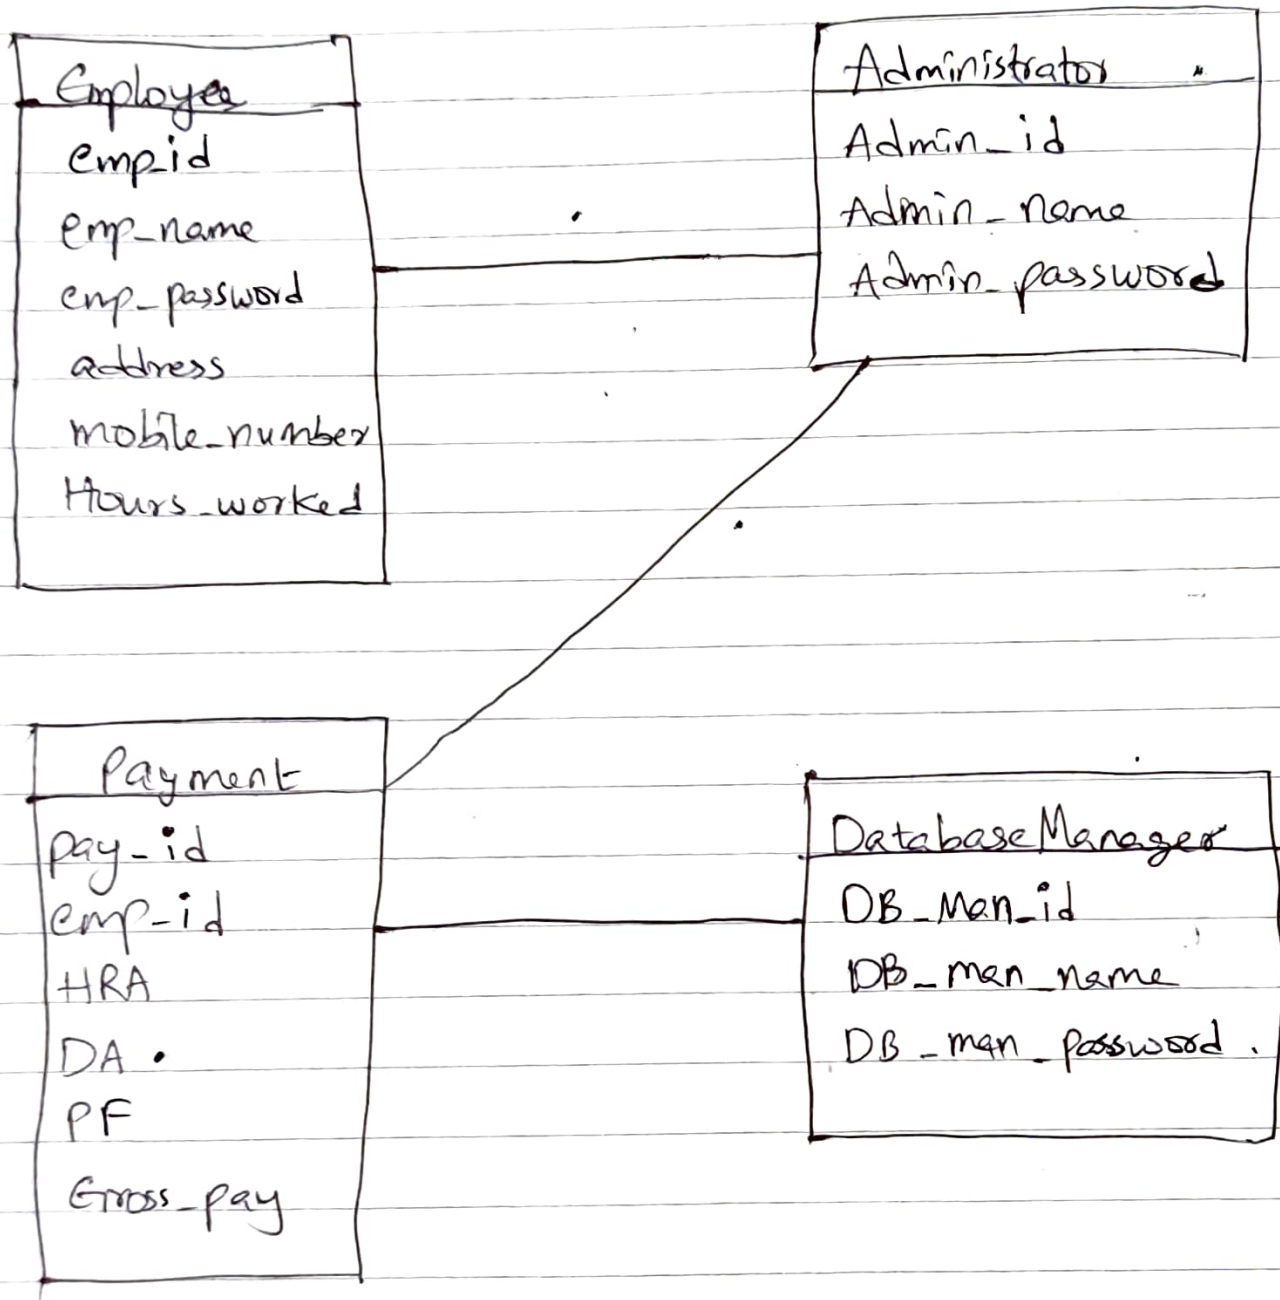 Employee
emp_id
emp_name
emp_password
address
mobile_number
Hours_worked
Administrator
Admin_id
Admin_name
Admin_password
Payment
pay_id
emp_id
HRA
DA
PF
Gross_pay
DatabaseManager
DB_Man_id
DB_man_name
DB_man_password